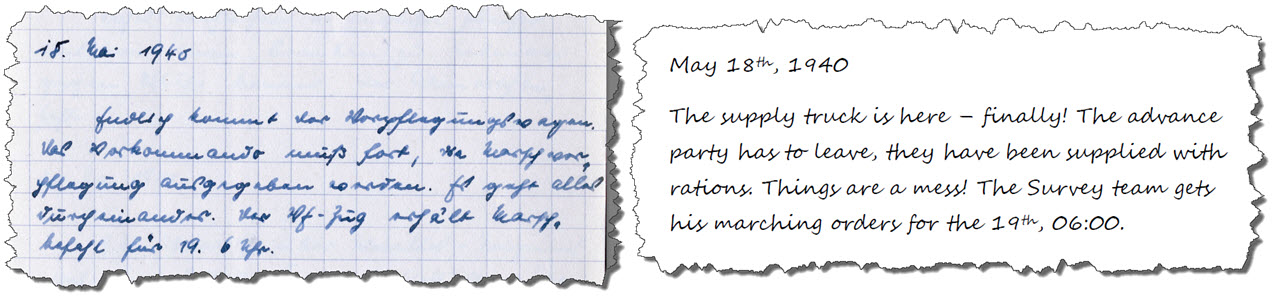 18. Mai 1940
Endlich kommt der Verpflegungswagen.
Das Vorkommando muß fort, Marschver-
pflegung ausgegeben worden. Es geht alles
durcheinander. Der erhält Marsch-
befehl für 19. 6 Uhr.
May 18th, 1940
The supply truck is here – finally! The advance
party has to leave, they have been supplied with
rations. Things are a mess! The Survey team gets
his marching orders for the 19th, 06:00.